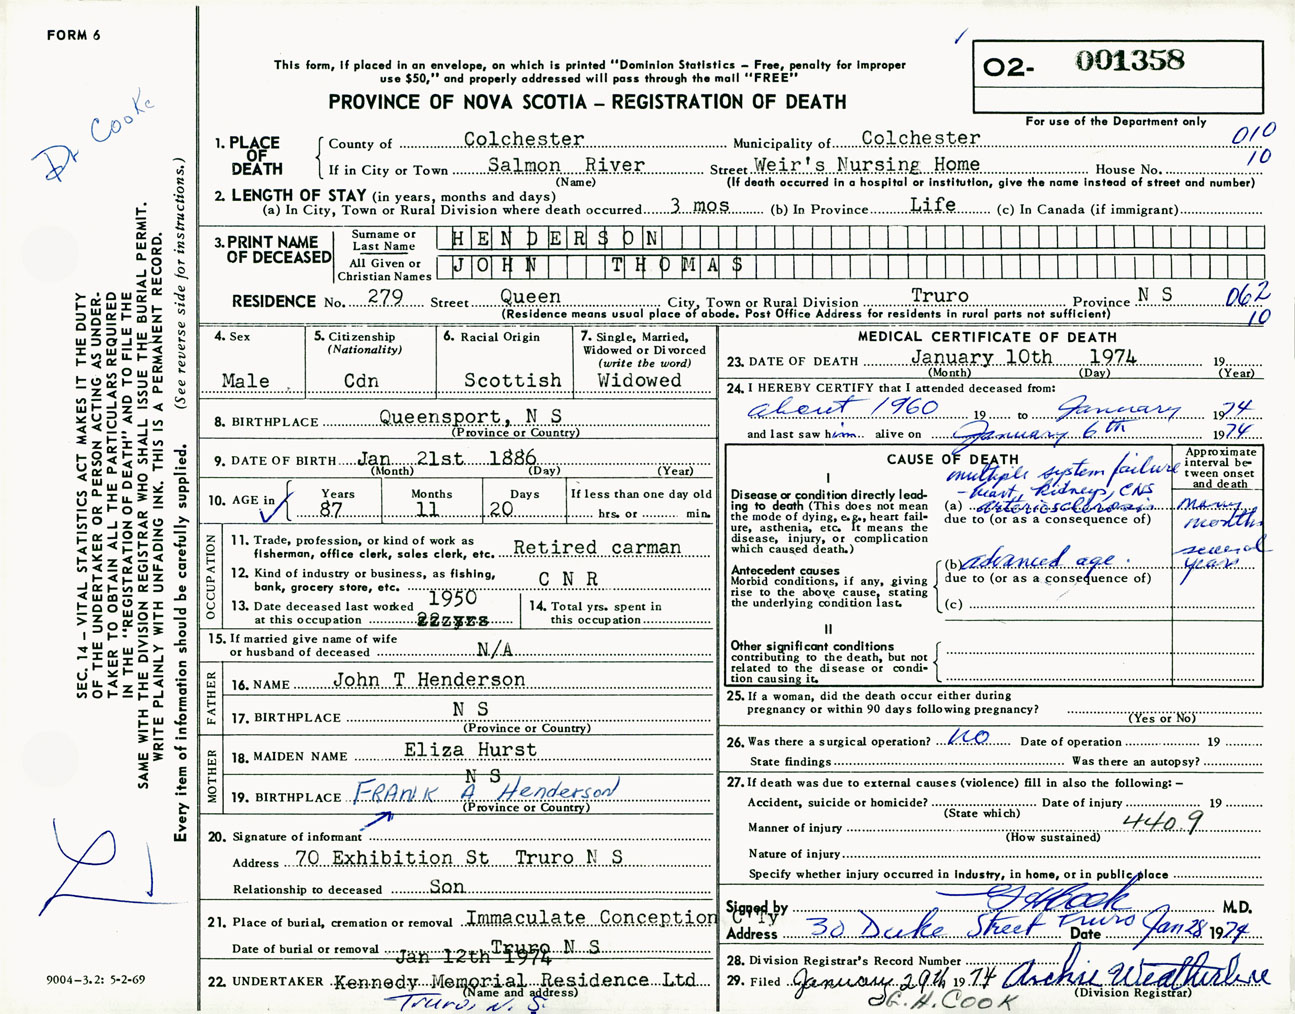 FORM 6
Dr Cooke
This form, if placed in an envelope, on which is printed "Dominion Statistics – Free, penalty for improper
use $50," and properly addressed will pass through the mail "FREE"
PROVINCE OF NOVA SCOTIA – REGISTRATION OF DEATH
O2- 001358
For use of the Department only
1. PLACE OF DEATH
County of Colchester Municipality of Colchester 010
If in City or Town Salmon River Street Weir's Nursing Home House No. 10
(Name) (If death occurred in a hospital or institution, give the name instead of street and number)
2. LENGTH OF STAY (in years, months and days)
(a) In City, Town or Rural Division where death occurred 3 mos (b) In Province Life (c) In Canada (if immigrant)
3. PRINT NAME OF DECEASED
Surname or Last Name HENDERSON
All Given or Christian Names JOHN THOMAS
RESIDENCE No. 279 Street Queen City, Town or Rural Division Truro Province N S 062
(Residence means usual place of abode. Post Office Address for residents in rural parts not sufficient) 10
4. Sex
Male
5. Citizenship
(Nationality)
Cdn
6. Racial Origin
Scottish
7. Single, Married,
Widowed or Divorced
(write the word)
Widowed
8. BIRTHPLACE Queensport, N S
(Province or Country)
9. DATE OF BIRTH Jan 21st 1886
(Month) (Day) (Year)
10. AGE in Years 87 Months 11 Days 20 If less than one day old
hrs. or min.
OCCUPATION
11. Trade, profession, or kind of work as
fisherman, office clerk, sales clerk, etc. Retired carman
12. Kind of industry or business, as fishing,
bank, grocery store, etc. C N R
13. Date deceased last worked
at this occupation 1950
14. Total yrs. spent in
this occupation
15. If married give name of wife
or husband of deceased N/A
FATHER
16. NAME John T Henderson
17. BIRTHPLACE N S
(Province or Country)
MOTHER
18. MAIDEN NAME Eliza Hurst
N S
19. BIRTHPLACE FRANK A Henderson
(Province or Country)
20. Signature of informant
Address 70 Exhibition St Truro N S
Relationship to deceased Son
21. Place of burial, cremation or removal Immaculate Conception C'Ty
Truro N S
Date of burial or removal Jan 12th 1974
22. UNDERTAKER Kennedy Memorial Residence Ltd
(Name and address)
Truro, N. S.
MEDICAL CERTIFICATE OF DEATH
23. DATE OF DEATH January 10th 1974 19
(Month) (Day) (Year)
24. I HEREBY CERTIFY that I attended deceased from:
about 1960 19 to January 1974
and last saw him alive on January 6th 1974
CAUSE OF DEATH
Approximate
interval be-
tween onset
and death
I
Disease or condition directly lead-
ing to death (This does not mean
the mode of dying, e.g., heart fail-
ure, asthenia, etc. It means the
disease, injury, or complication
which caused death.)
multiple system failure
- heart, kidneys, CNS
(a) arteriosclerosis many months
due to (or as a consequence of)
Antecedent causes
Morbid conditions, if any, giving
rise to the above cause, stating
the underlying condition last.
(b) advanced age. several years
due to (or as a consequence of)
(c)
II
Other significant conditions
contributing to the death, but not
related to the disease or condi-
tion causing it.
25. If a woman, did the death occur either during
pregnancy or within 90 days following pregnancy?
(Yes or No)
26. Was there a surgical operation? no Date of operation 19
State findings Was there an autopsy?
27. If death was due to external causes (violence) fill in also the following: –
Accident, suicide or homicide? Date of injury 19
(State which)
Manner of injury 440.9
(How sustained)
Nature of injury
Specify whether injury occurred in industry, in home, or in public place
Signed by G H Cook M.D.
Address 30 Duke Street Truro Date Jan 28 1974
28. Division Registrar's Record Number
29. Filed January 29th 1974 Archie Weatherbee
(Division Registrar)
G. H. COOK
SEC. 14 – VITAL STATISTICS ACT MAKES IT THE DUTY
OF THE UNDERTAKER OR PERSON ACTING AS UNDER-
TAKER TO OBTAIN ALL THE PARTICULARS REQUIRED
IN THE "REGISTRATION OF DEATH" AND TO FILE THE
SAME WITH THE DIVISION REGISTRAR WHO SHALL ISSUE THE BURIAL PERMIT.
WRITE PLAINLY WITH UNFADING INK. THIS IS A PERMANENT RECORD.
Every item of information should be carefully supplied. (See reverse side for instructions.)
9004–3.2: 5-2-69